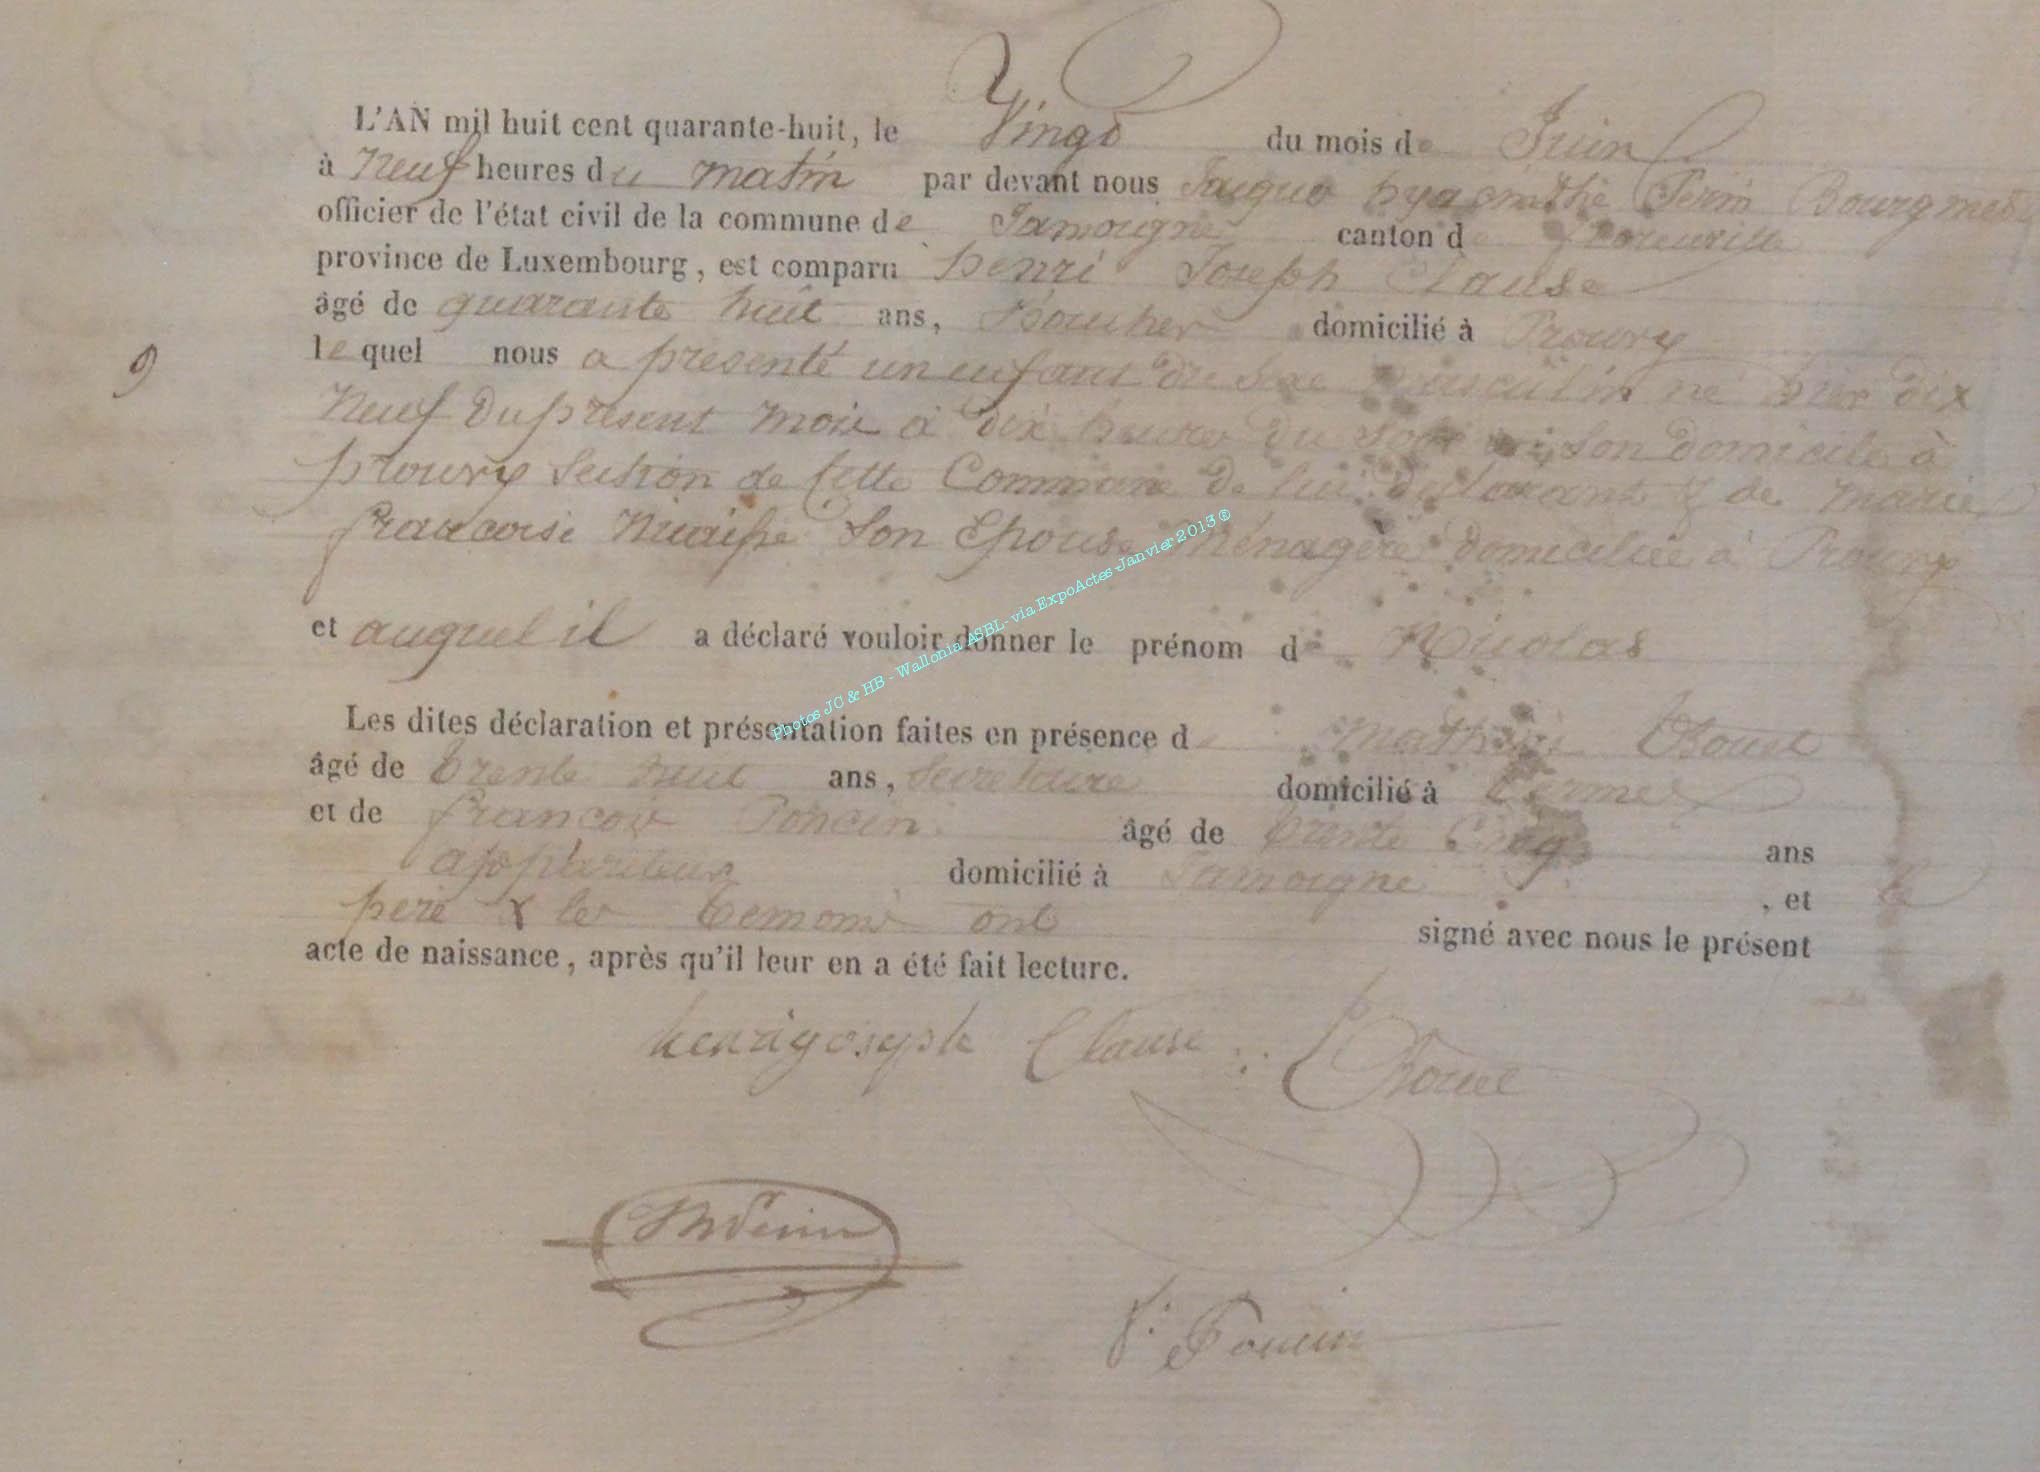 L'AN mil huit cent quarante-huit, le Vingt du mois de Juin
à Neuf heures du matin par devant nous Jacques hyacinthe Perin Bourgmestre
officier de l'état civil de la commune de Jamoigne canton de florenville
province de Luxembourg, est comparu henri Joseph Clause
âgé de quarante huit ans, domicilié à Prouvy
9
lequel nous a présenté un enfant du sexe masculin né hier dix
Neuf du présent mois à dix heures du soir en son domicile à
prouvy section de cette Commune de lui declarant & de marie
francoise son Epouse Ménagère domiciliée à Prouvy
et auquel il a déclaré vouloir donner le prénom de Nicolas
Les dites déclaration et présentation faites en présence de mathieu
âgé de trente huit ans, secretaire domicilié à termes
et de francois Poncin âgé de trente Cinq ans
appariteur domicilié à Jamoigne, et le
pere & les temoins ont signé avec nous le présent
acte de naissance, après qu'il leur en a été fait lecture.
henrigoseph Clause
Perin
f: Poncin
Photos JC & HB - Wallonia ASBL- via ExpoActes -Janvier 2013 ®